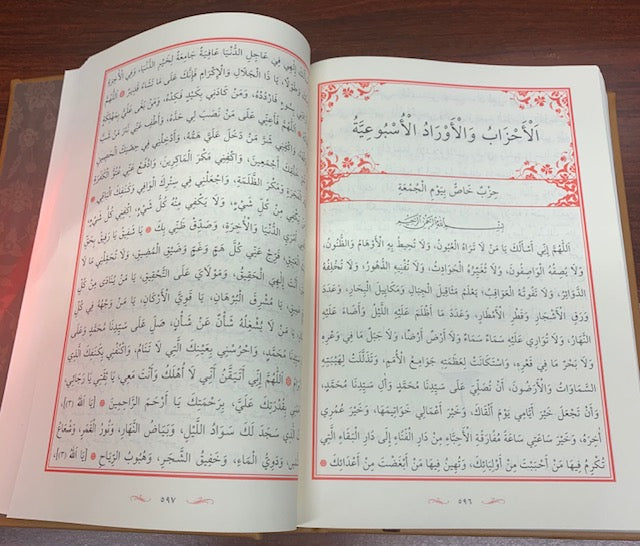 اَلْأَحْزَابُ وَالْأَوْرَادُ الْأُسْبُوعِيَّةُ
حِزْبٌ خَاصٌّ بِيَوْمِ الْجُمْعَةِ
بِسْمِ اللهِ الرَّحْمٰنِ الرَّحِيمِ
اَللّٰهُمَّ إِنِّي أَسْأَلُكَ يَا مَنْ لَا تَرَاهُ الْعُيُونُ، وَلَا تُحِيطُ بِهِ الْأَوْهَامُ وَالظُّنُونُ،
وَلَا يَصِفُهُ الْوَاصِفُونَ، وَلَا تُغَيِّرُهُ الْحَوَادِثُ، وَلَا تُفْنِيهِ الدُّهُورُ، وَلَا تُخْلِفُهُ
الدَّوَائِرُ، وَلَا تَفُوتُهُ الْعَوَاقِبُ؛ يَعْلَمُ مَثَاقِيلَ الْجِبَالِ وَمَكَايِيلَ الْبِحَارِ، وَعَدَدَ
وَرَقِ الْأَشْجَارِ وَقَطْرِ الْأَمْطَارِ، وَعَدَدَ مَا أَظْلَمَ عَلَيْهِ اللَّيْلُ وَأَضَاءَ عَلَيْهِ
النَّهَارُ، وَلَا تُوَارِي عَلَيْهِ سَمَاءٌ سَمَاءً وَلَا أَرْضٌ أَرْضًا، وَلَا جَبَلٌ مَا فِي وَعْرِهِ
وَلَا بَحْرٌ مَا فِي قَعْرِهِ، وَاسْتَكَانَتْ لِعَظَمَتِهِ جَوَامِعُ الْأُمَمِ، وَتَذَلَّلَتْ لِهَيْبَتِهِ
السَّمَاوَاتُ وَالْأَرَضُونَ، أَنْ تُصَلِّيَ عَلَى سَيِّدِنَا مُحَمَّدٍ وَآلِ سَيِّدِنَا مُحَمَّدٍ،
وَأَنْ تَجْعَلَ خَيْرَ أَيَّامِي يَوْمَ أَلْقَاكَ، وَخَيْرَ أَعْمَالِي خَوَاتِيمَهَا، وَخَيْرَ عُمُرِي
آخِرَهُ، وَخَيْرَ سَاعَتِي سَاعَةَ مُفَارَقَةِ الْأَحِبَّاءِ مِنْ دَارِ الْفَنَاءِ إِلَى دَارِ الْبَقَاءِ الَّتِي
تُكْرِمُ فِيهَا مَنْ أَحْبَبْتَ مِنْ أَوْلِيَائِكَ، وَتُهِينُ فِيهَا مَنْ أَبْغَضْتَ مِنْ أَعْدَائِكَ
٥٩٦
إِلٰهِي فِي عَاجِلِ الدُّنْيَا عَافِيَةً جَامِعَةً لِخَيْرِ الدُّنْيَا، وَفِي الْآخِرَةِ
يَا ذَا الْجَلَالِ وَالْإِكْرَامِ فَإِنَّكَ عَلَى مَا تَشَاءُ قَدِيرٌ اَللّٰهُمَّ
بِسُوءٍ فَارْدُدْهُ، وَمَنْ كَادَنِي بِكَيْدٍ فَكِدْهُ، وَمَنْ بَغَى عَلَيَّ
اَللّٰهُمَّ فَأَعِنِّي عَلَى مَنْ نَصَبَ لِي
وَاكْفِنِي مَنْ دَخَلَ عَلَيَّ هَمُّهُ، وَأَدْخِلْنِي فِي
أَجْمَعِينَ، وَاكْفِنِي مَكْرَ الْمَاكِرِينَ، وَادْفَعْ عَنِّي
وَمَكْرَ الظَّلَمَةِ، وَاجْعَلْنِي فِي سِتْرِكَ الْوَاقِي
مِنْ كُلِّ شَيْءٍ، وَلَا يَكْفِي مِنْهُ كُلُّ شَيْءٍ، اِكْفِنِي كُلَّ شَيْءٍ
الدُّنْيَا وَالْآخِرَةِ، وَصَدِّقْ ظَنِّي بِكَ يَا شَفِيقُ يَا رَفِيقُ بِحَقِّ
فَرِّجْ عَنِّي كُلَّ هَمٍّ وَغَمٍّ وَضِيقِ الْمَضِيقِ، وَلَا تُحَمِّلْنِي مَا لَا
أَنْتَ إِلٰهِيَ الْحَقِيقُ، وَمَوْلَايَ عَلَى التَّحْقِيقِ،
يَا مُشْرِقَ الْبُرْهَانِ، يَا قَوِيَّ الْأَرْكَانِ، يَا مَنْ وَجْهُهُ فِي كُلِّ
يَا مَنْ لَا يَشْغَلُهُ شَأْنٌ عَنْ شَأْنٍ، صَلِّ عَلَى سَيِّدِنَا مُحَمَّدٍ وَعَلَى
سَيِّدِنَا مُحَمَّدٍ، وَاحْرُسْنِي بِعَيْنِكَ الَّتِي لَا تَنَامُ، وَاكْنُفْنِي بِكَنَفِكَ الَّذِي
اَللّٰهُمَّ إِنِّي أَتَيَقَّنُ أَنِّي لَا أَهْلِكُ وَأَنْتَ مَعِي، يَا ثِقَتِي يَا رَجَائِي،
بِقُدْرَتِكَ عَلَيَّ، بِرَحْمَتِكَ يَا أَرْحَمَ الرَّاحِمِينَ [يَا اَللّٰهُ (١٣)]،
الَّذِي سَجَدَ لَكَ سَوَادُ اللَّيْلِ، وَبَيَاضُ النَّهَارِ، وَنُورُ الْقَمَرِ، وَشُعَاعُ
وَدَوِيُّ الْمَاءِ، وَحَفِيفُ الشَّجَرِ، وَهُبُوبُ الرِّيَاحِ [يَا اَللّٰهُ (١٣)]،
٥٩٧